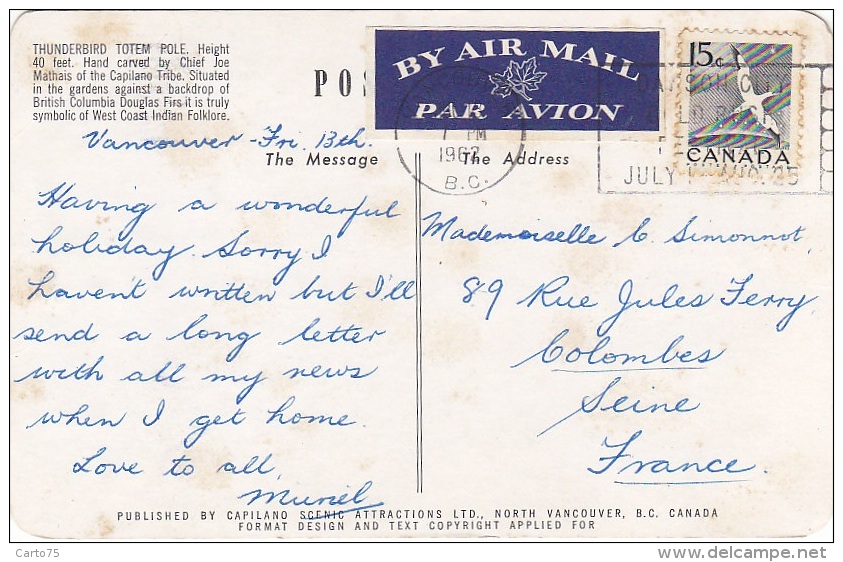 THUNDERBIRD TOTEM POLE. Height
40 feet. Hand carved by Chief Joe
Mathais of the Capilano Tribe. Situated
in the gardens against a backdrop of
British Columbia Douglas Firs it is truly
symbolic of West Coast Indian Folklore.
POS
BY AIR MAIL
PAR AVION
15c
CANADA
DAWSON CITY
PM
1962
B.C.
JULY
Vancouver - Fri. 13th.
The Message
The Address
Having a wonderful
holiday. Sorry I
haven't written but I'll
send a long letter
with all my news
when I get home.
Love to all,
Muriel
Mademoiselle C. Simonnot,
89 Rue Jules Ferry,
Colombes
Seine
France.
PUBLISHED BY CAPILANO SCENIC ATTRACTIONS LTD., NORTH VANCOUVER, B.C. CANADA
FORMAT DESIGN AND TEXT COPYRIGHT APPLIED FOR
Carto75
www.delcampe.net